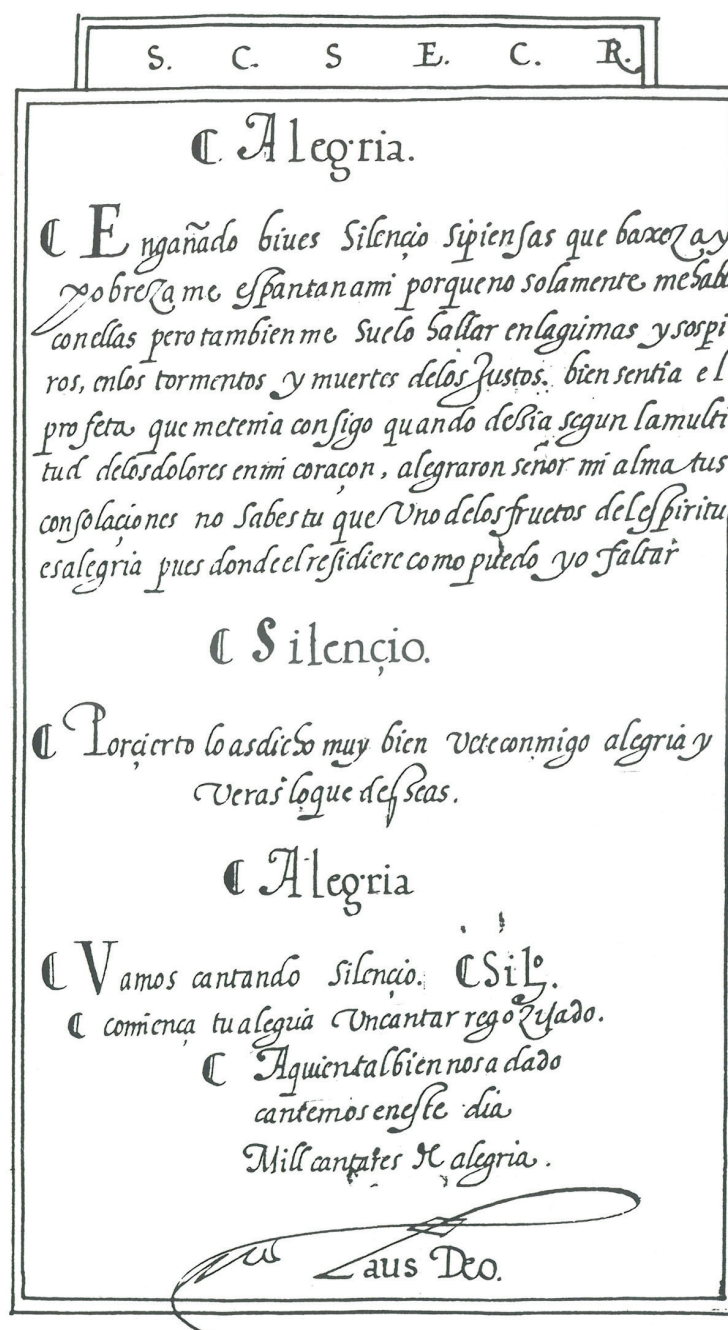 S. C. S E. C. R.
☾ Alegria.
☾ Engañado biues Silençio Sipiensas que baxeza y
pobreza me espantan ami porque no solamente me hall
con ellas pero tambien me Suelo hallar en lagrimas y sospi
ros, en los tormentos y muertes de los Justos. bien sentia el
profeta que me tenia consigo quando desia segun la multi
tud delos dolores en mi coraçon, alegraron señor mi alma tus
consolaçiones no Sabes tu que Uno delos fructos del espiritu
es alegria pues donde el residiere como puedo yo faltar
☾ Silençio.
☾ Porçierto lo as dicho muy bien vete conmigo alegria y
Veras loque desseas.
☾ Alegria
☾ Vamos cantando Silençio. ☾ Silº.
☾ comiença tu alegria Un cantar regozijado.
☾ Aquien tal bien nos a dado
cantemos en este dia
Mill cantares de alegria.
Laus Deo.